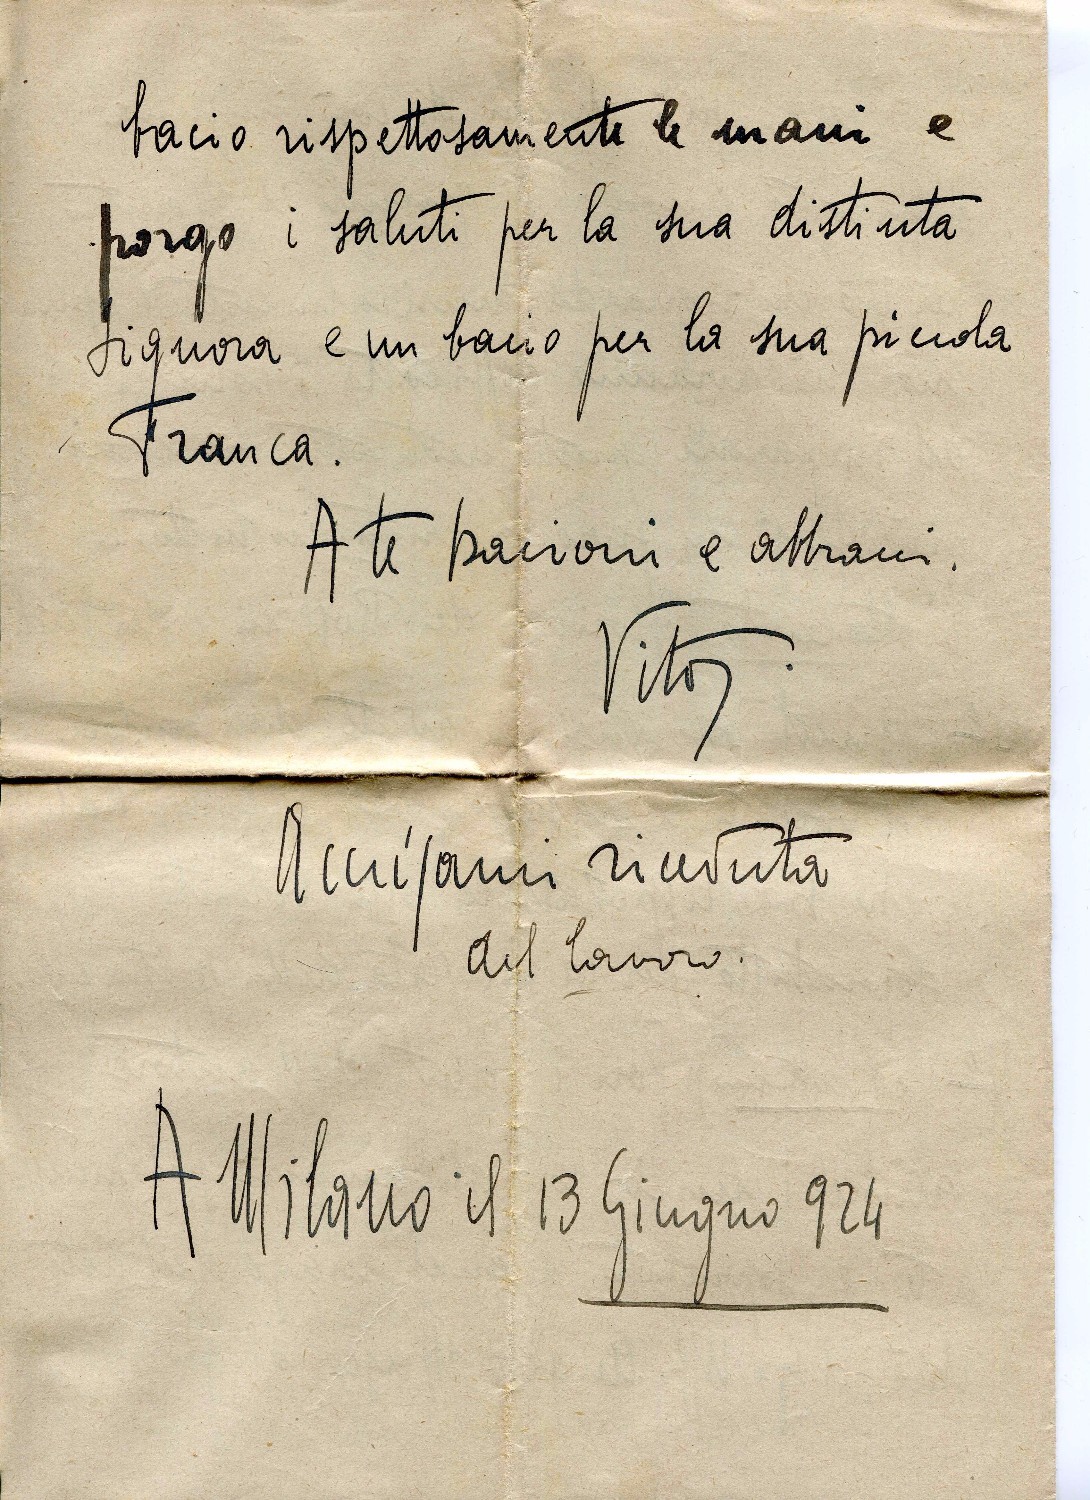 bacio rispettosamente le mani e
porgo i saluti per la sua distinta
signora e un bacio per la sua piccola
Franca.
A te bacioni e abbracci.
Vito
Accusami ricevuta
del lavoro.
A Milano il 13 Giugno 924